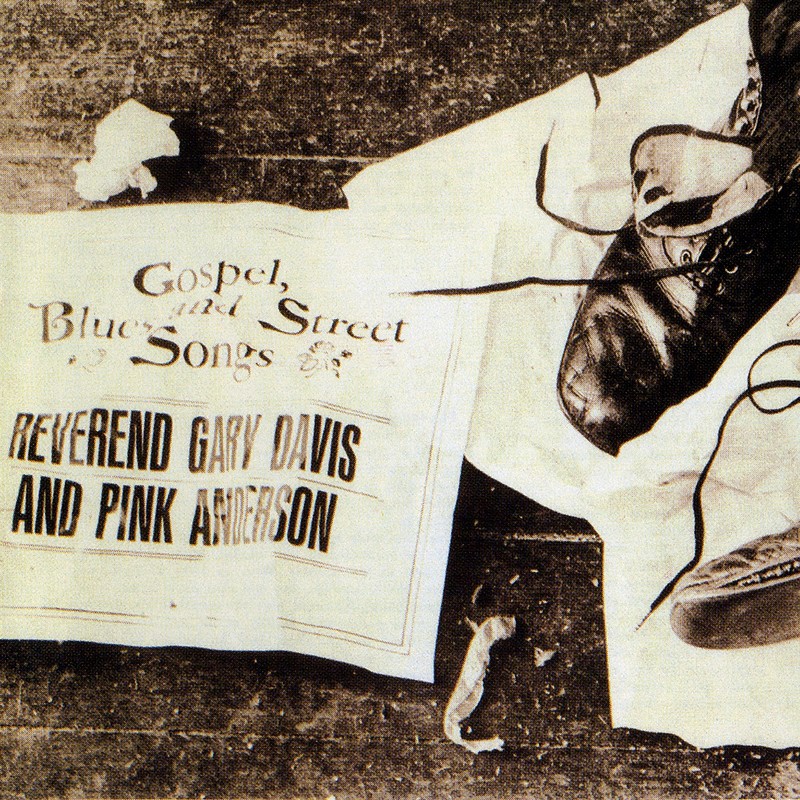 Gospel,
and
Blues Street
Songs
REVEREND GARY DAVIS
AND PINK ANDERSON